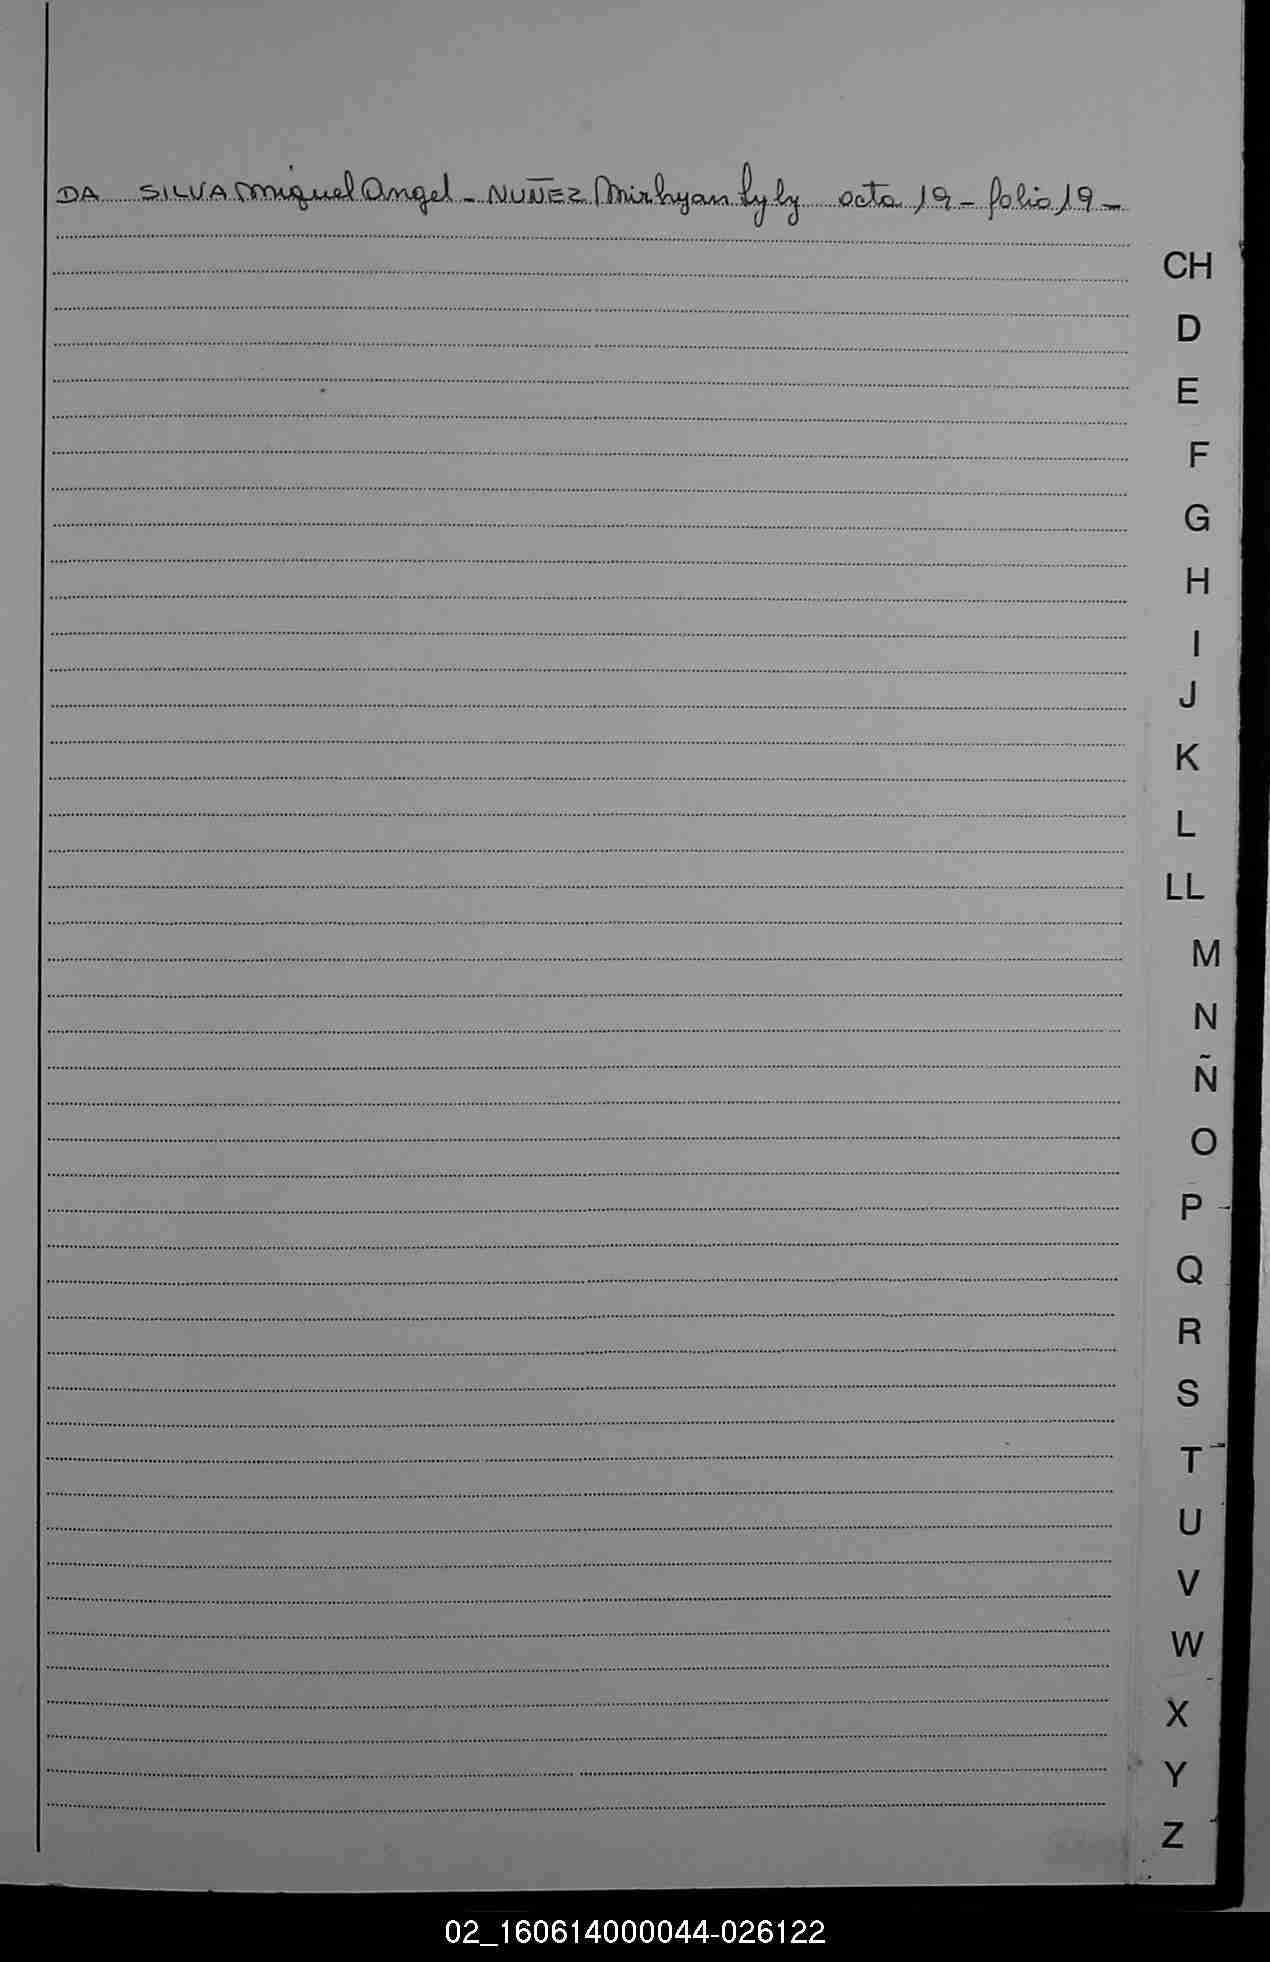 DA SILVA Miguel Angel - NUÑEZ Mirhyan Lyly acta 19 - folio 19 -
CH
D
E
F
G
H
I
J
K
L
LL
M
N
Ñ
O
P
Q
R
S
T
U
V
W
X
Y
Z
02_160614000044-026122